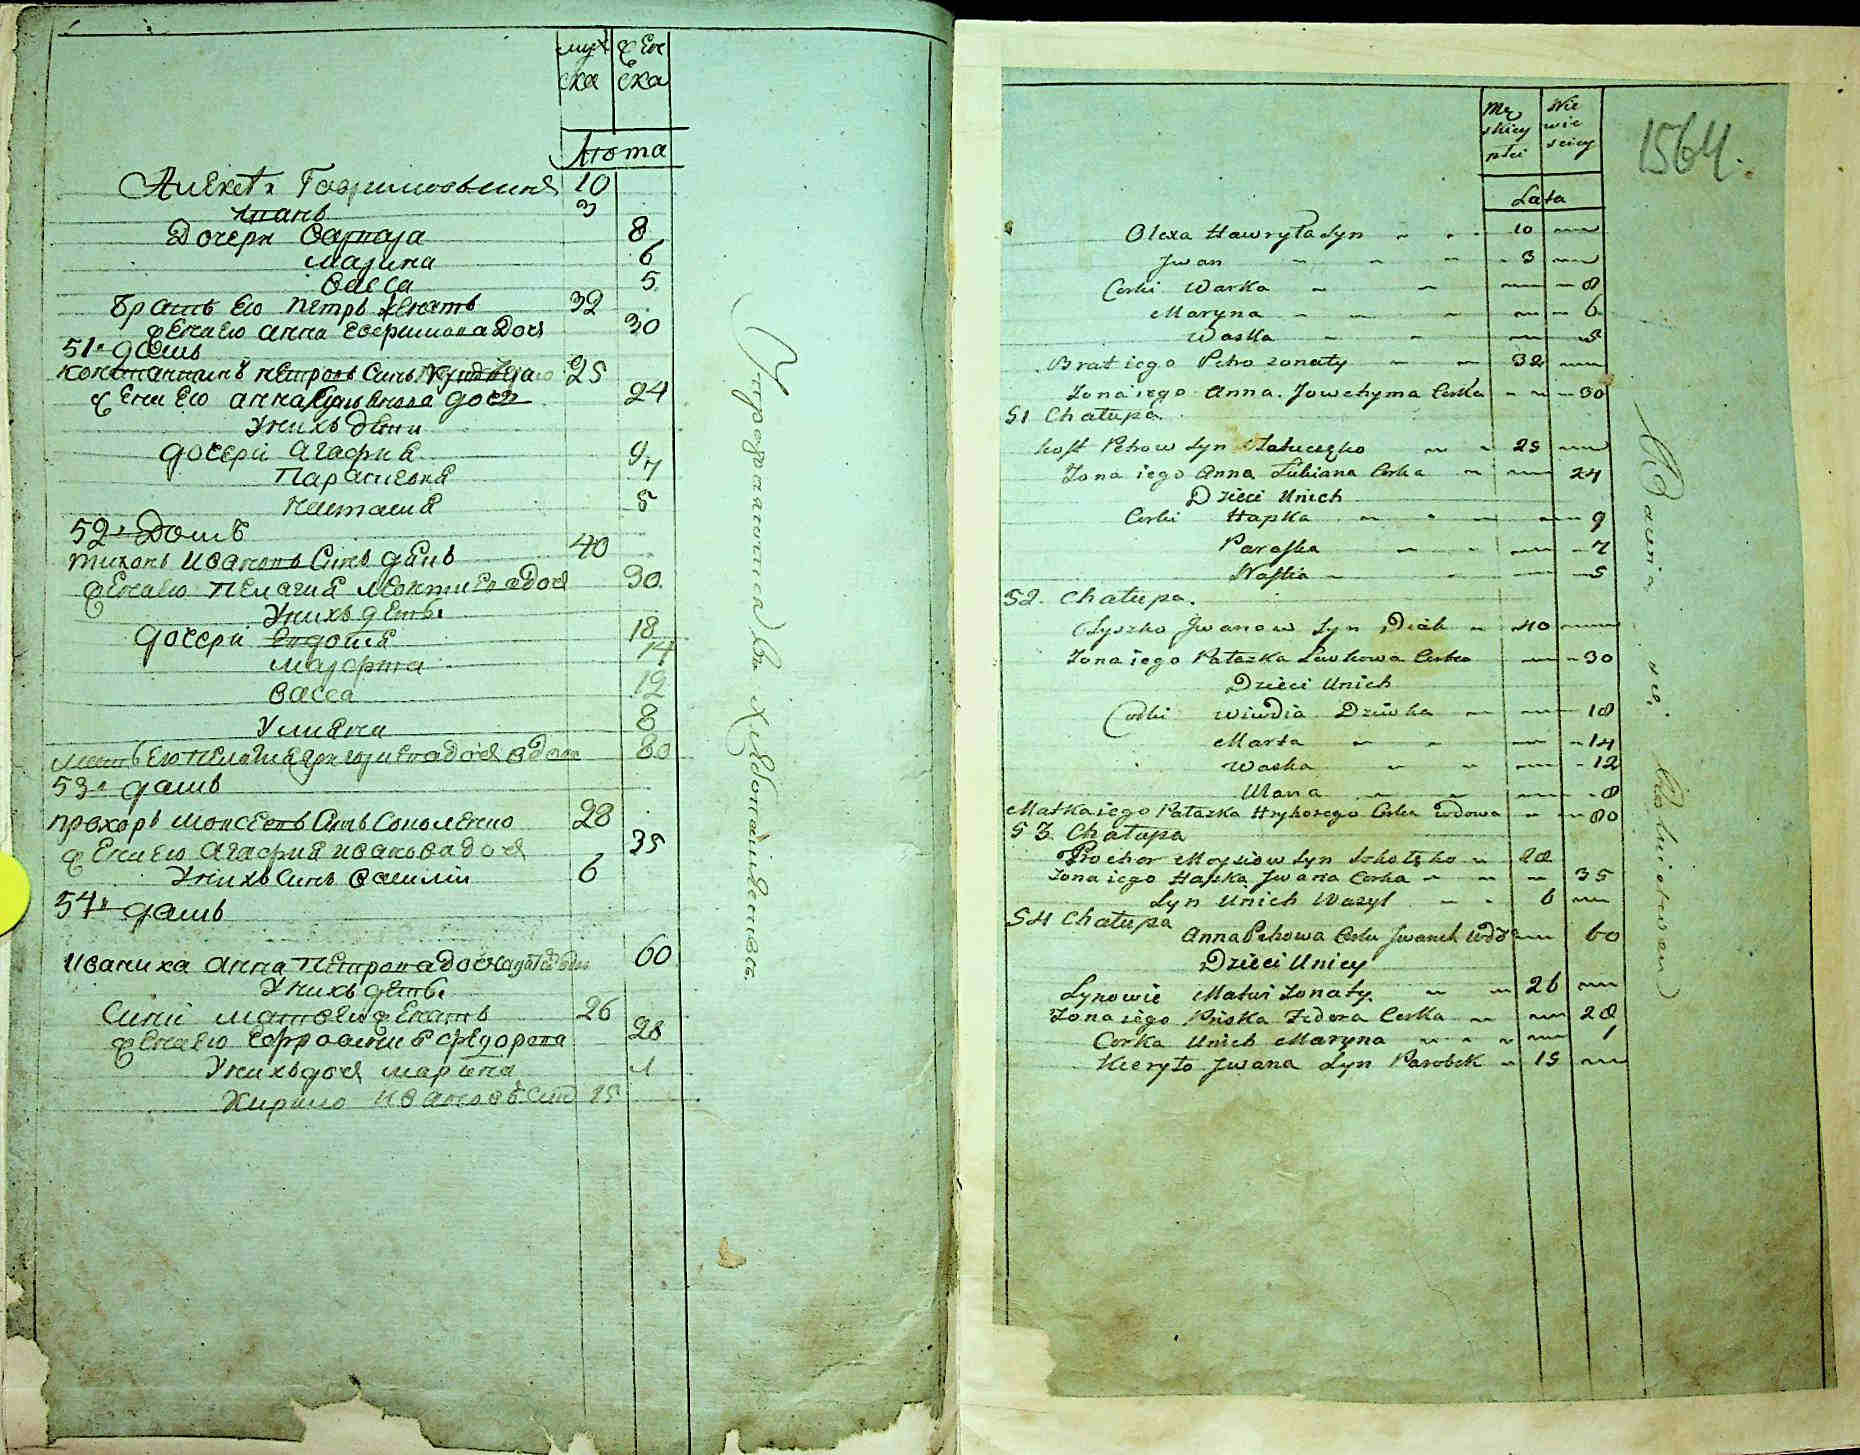 муж фен
ска ска
Лѣта
Алекса Гаврилов Синъ 10
Иванъ 3
Дочери Варвара 8
Марина 6
Васса 5
Братъ Его Петръ женатъ 32
жена Его Анна Евфимова Доч 30
51 домъ
Константинъ Петровъ Синъ 25
жена Его Анна дочь 24
У нихъ дѣти
дочери Агафия 9
Параскевия 7
Настасия 5
52 Домъ
Тихонъ Ивановъ Синъ 40
жена Его Пелагия доч 30
У нихъ дети
дочери Евдокия 18
Марфта 14
Васса 12
Улияна 8
мать Его Пелагия Григориева доч вдова 80
53 домъ
Прохоръ Моисеевъ Синъ Соколенко 28
жена Его Агафия Иванова доч 35
У нихъ Синъ Василии 6
54 домъ
Иваниха Анна Петрова доч 60
У нихъ дети
Сини Матвеи женатъ 26
жена Его Евфросиния Федорова 28
У нихъ доч Марина 1
Кирило Ивановъ Син 15
1564.
Mę skiey płci Nie wie sciey
Lata
Olexa Hawryła Syn 10
Jwan 3
Corki Warka 8
Maryna 6
Waska 5
Brat iego Petro zonaty 32
Zona iego Anna Jowchyma Corka 30
51 Chałupa
Kost Petrow Syn 25
Zona iego Anna Łukiana Corka 24
Dzieci Unich
Corki Hapka 9
Paraska 7
Nastia 5
52. Chałupa.
Jwanow Syn Diak 40
Zona iego Palazka Lewkowa Corka 30
Dzieci Unich
Corki Wiwdia Dziwka 18
Marta 14
Waska 12
Ulana 8
Matka iego Palazka Hryhorego Corka wdowa 80
53 Chałupa
Prochor Moysiow Syn 28
Zona iego Hapka Jwana Corka 35
Syn Unich Wasyl 6
54 Chałupa
Anna Petrowa Corka Jwanich wdo 60
Dzieci Unicy
Synowie Matwi zonaty 26
Zona iego Priska Fedora Corka 28
Corka Unich Maryna 1
Keryło Jwana Syn Parobek 15